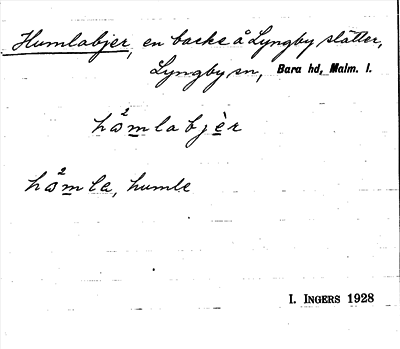 Humlabjer, en backe å Lyngby slätter,
Lyngby sn, Bara hd, Malm. l.
hɷ²mlabjèr
hɷ²mla, humle
I. INGERS 1928